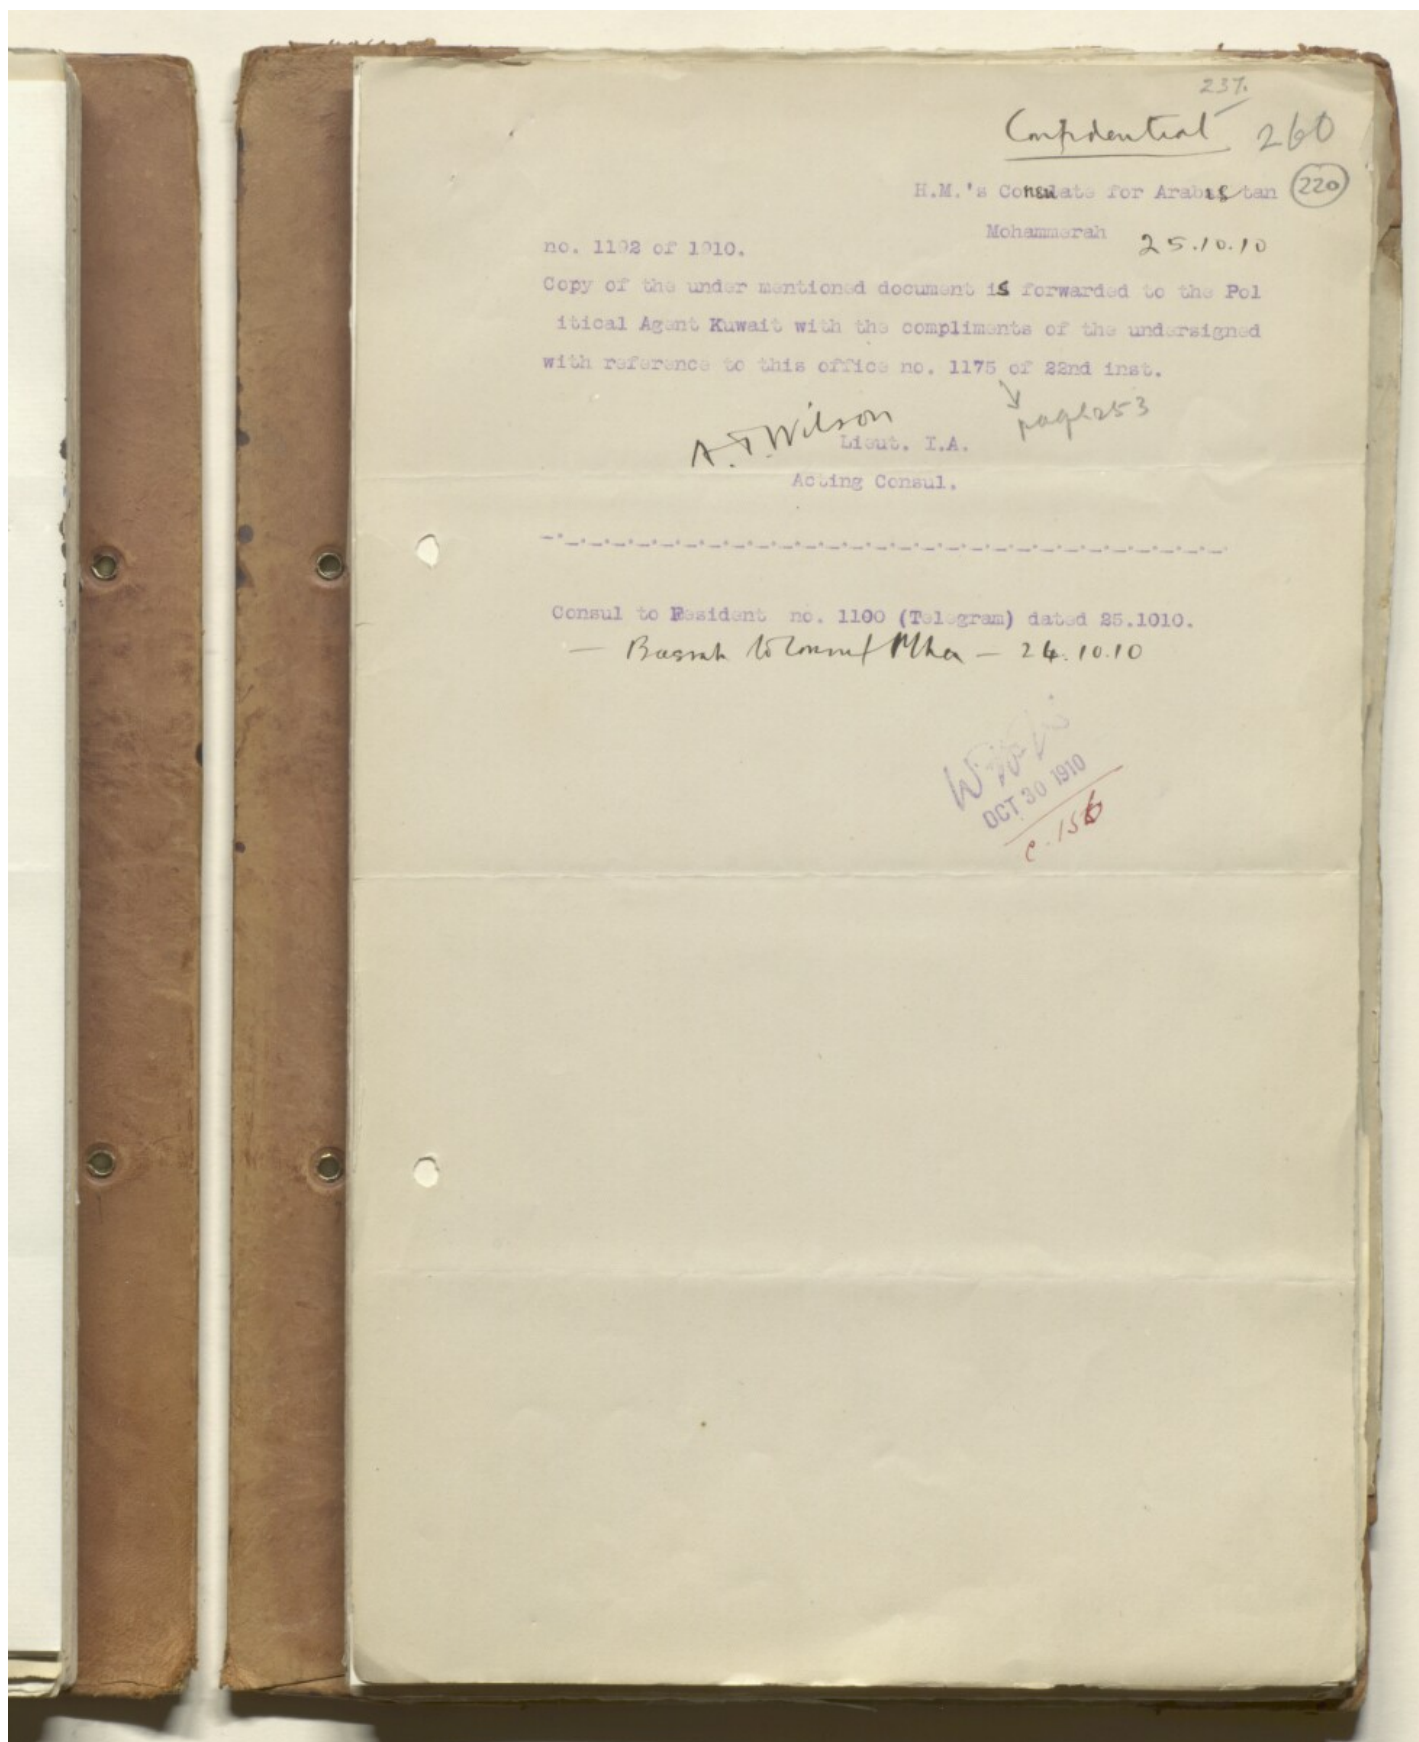 237.
Confidential 260
H.M.'s Consulate for Arabistan 220
Mohammerah 25.10.10
no. 1192 of 1910.
Copy of the under mentioned document is forwarded to the Pol
itical Agent Kuwait with the compliments of the undersigned
with reference to this office no. 1175 of 22nd inst.
page 253
A.T. Wilson
Lieut. I.A.
Acting Consul.
Consul to Resident no. 1100 (Telegram) dated 25.1010.
— Basrah to Consul Mha — 24.10.10
OCT 30 1910
C. 156